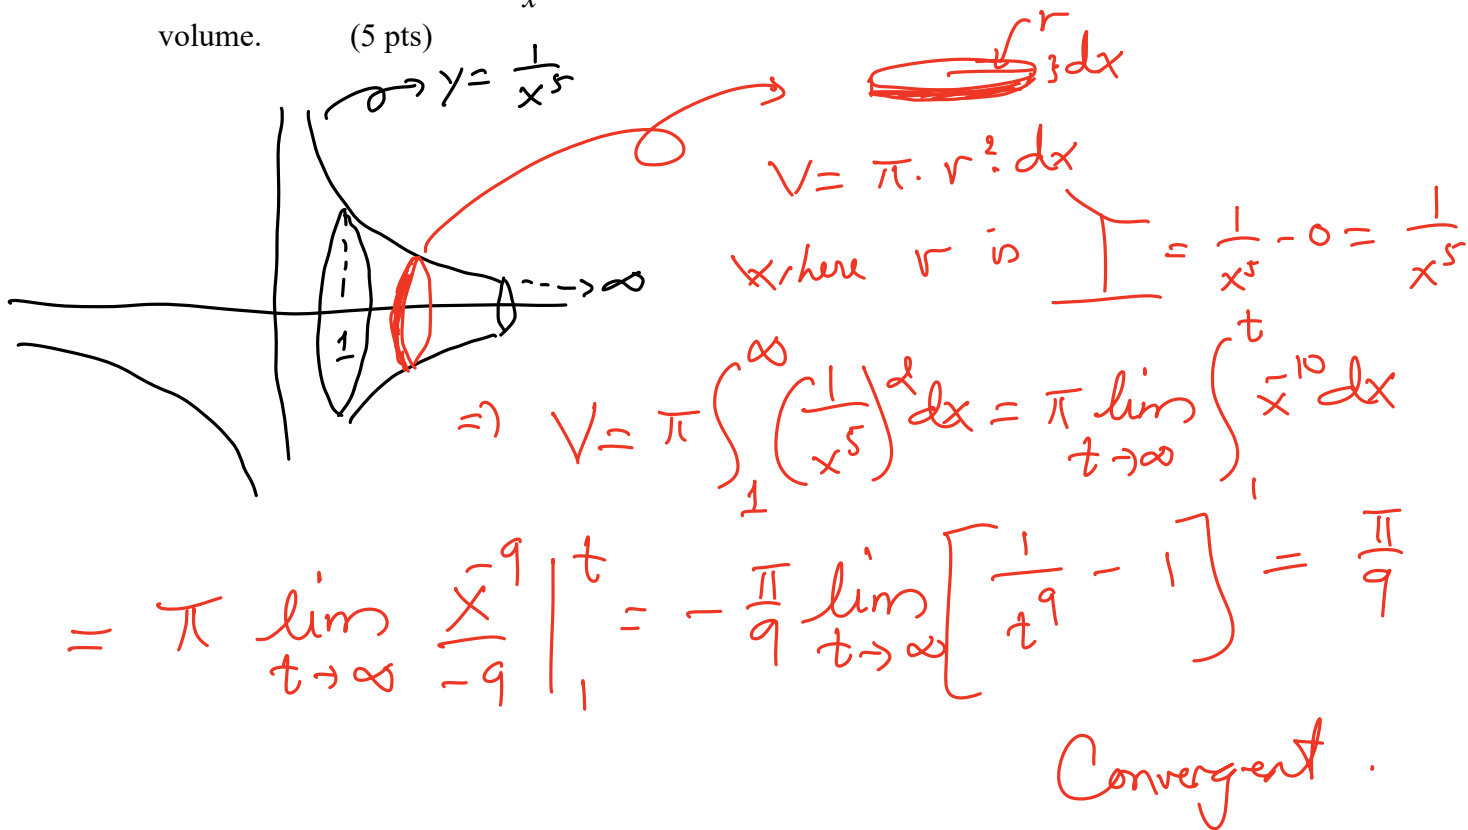 x
volume. (5 pts)
y = 1/x⁵
r
} dx
V = π · r² · dx
where r is = 1/x⁵ - 0 = 1/x⁵
---> ∞
1
=> V = π ∫₁^∞ (1/x⁵)² dx = π lim t→∞ ∫₁^t x⁻¹⁰ dx
= π lim t→∞ x⁻⁹/-9 |₁^t = - π/9 lim t→∞ [1/t⁹ - 1] = π/9
Convergent .